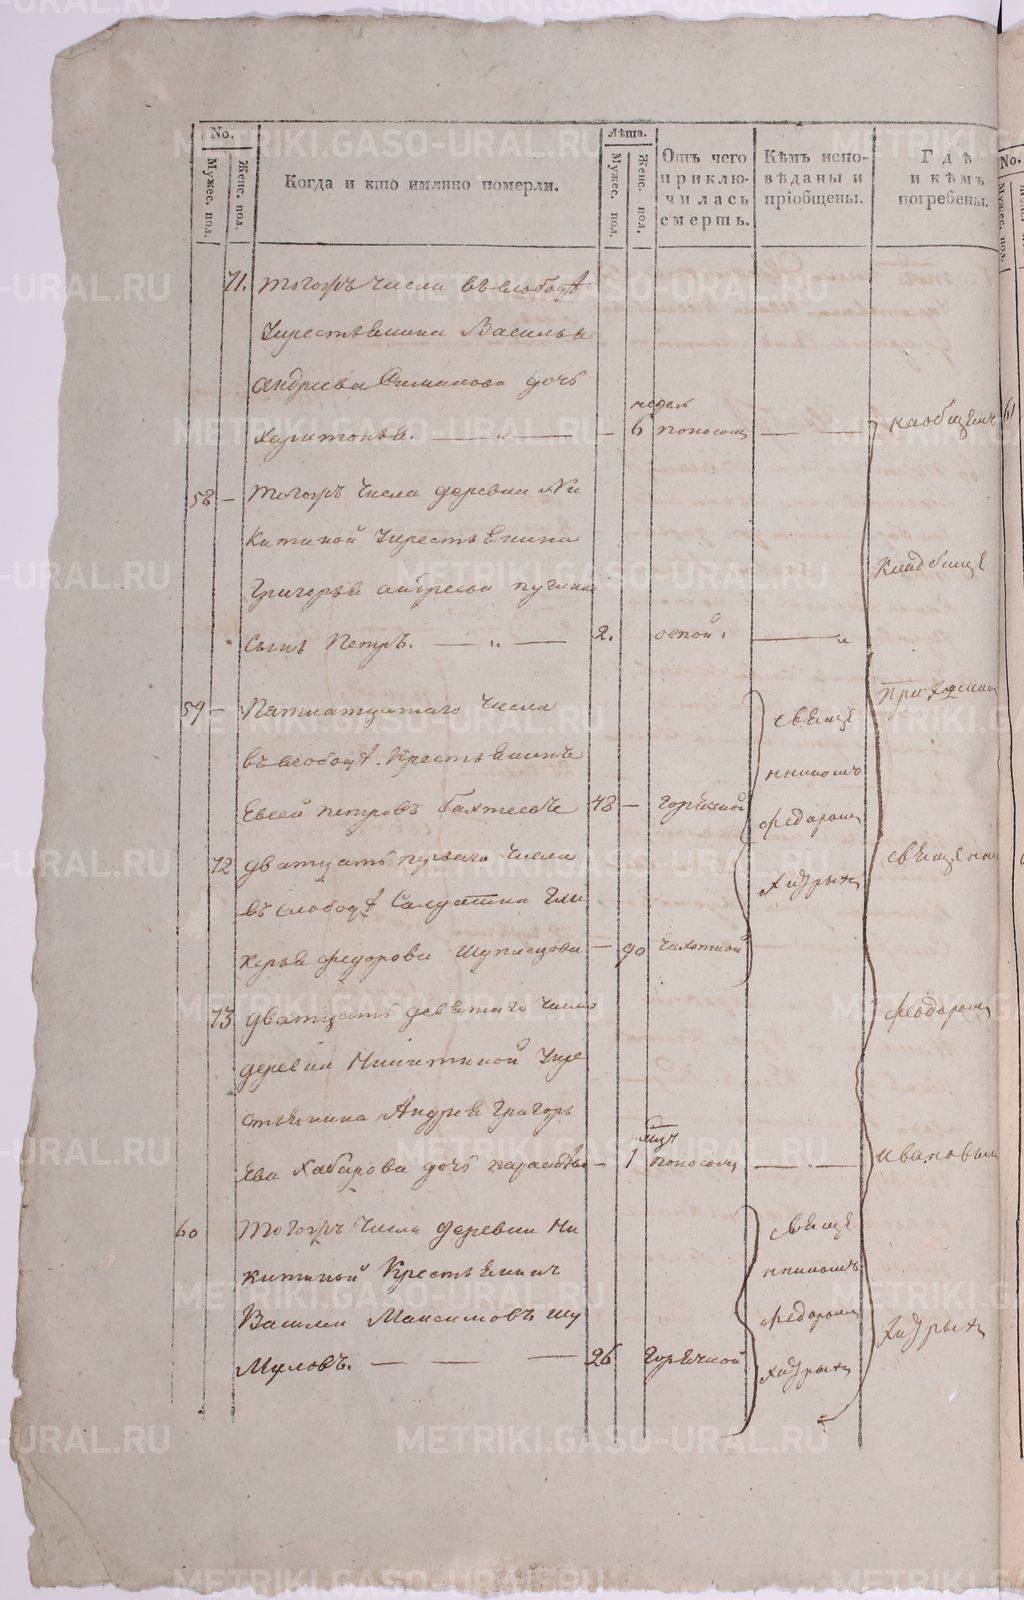 No.
Мужес. пол.
Женс. пол.
Когда и кто имянно померли.
Лѣта.
Мужес. пол.
Женс. пол.
Отъ чего приклю-
чилась
смерть.
Кѣмъ испо-
вѣданы и
пріобщены.
Гдѣ
и кѣмъ
погребены.
No.
71. Тогожъ числа въ слободѣ
Крестьянина Василья
Андреева дочь
недель
Харитонья. — „ — — 6 поносомъ —
на общемъ
61
58 — Тогожъ числа деревни Ни
китиной Крестьянина
Григорья
сынъ Петръ. — „ — 2. оспой. — „
Кладбище
приходскимъ
59 — Пятнатцатаго числа
въ слободѣ Крестьянинъ
Евсей Петровъ 48 — горячкой
свяще
нникомъ
Федоромъ
72 дватцать перваго числа
въ слободѣ Салдатка Гли
керья Федорова — 90 чахоткой
священни
73 дватцать девятаго числа
деревни Никитиной Кре
стьянина Андрея Григорь
ева Хабарова дочь — 1 поносомъ — . —
Феодоромъ
Ивановым
60 Тогожъ числа деревни Ни
китиной Крестьянинъ
Василей Максимовъ Шу
миловъ. — — — 26 горячкой
свяще
нникомъ
Федоромъ
METRIKI.GASO-URAL.RU